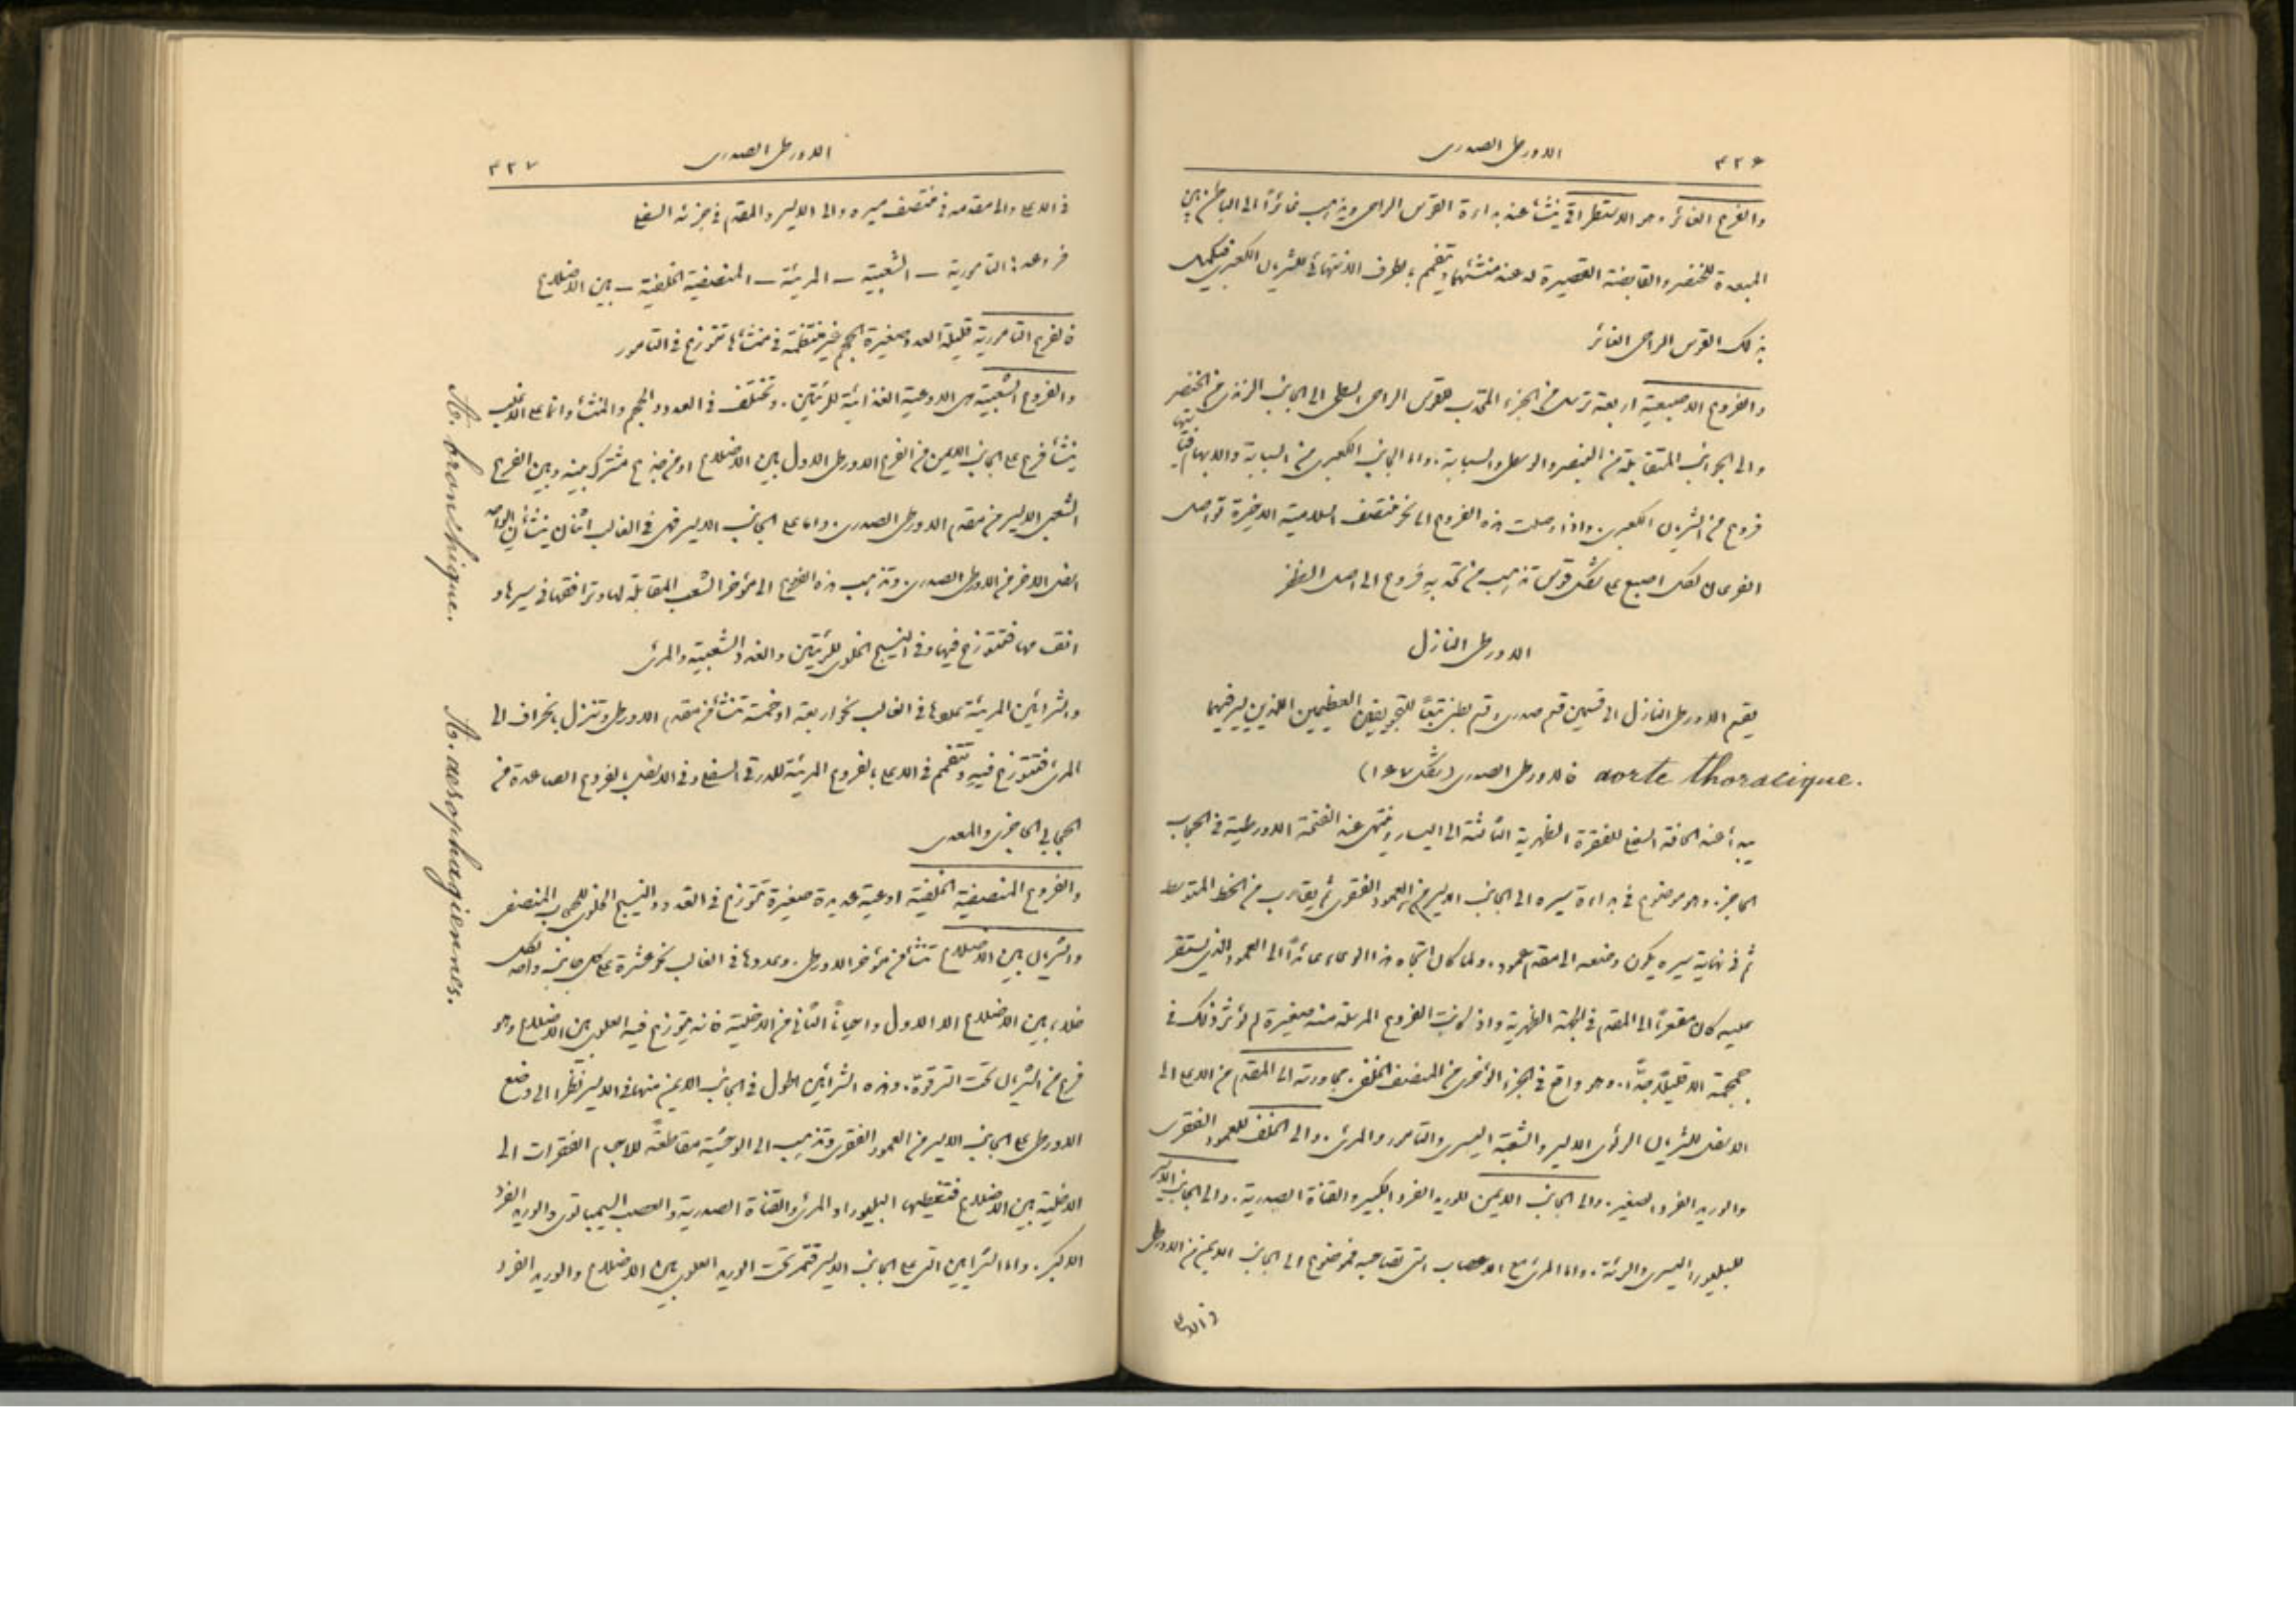 ٤٢٦
الاورطى الصدرى
والفرع الغائر وهو الاستطراقى ينشأ عند بداءة القوس الراحى ويذهب غائراً الى الباطن بين
المبعدة للخنصر والقابضة القصيرة له عند منشئهما ويتفمم بالطرف الانتهائى للشريان الكعبرى فيكمل
بذلك القوس الراحى الغائر
والفروع الاصبعية اربعة ترسل من الجزء المحدب للقوس الراحى السطحى الى الجانب الزندى من الخنصر
والى الجوانب المتقابلة من البنصر والوسطى والسبابة. واما الجانب الكعبرى من السبابة والابهام فيأتيها
فروع من الشريان الكعبرى. واذا وصلت هذه الفروع الى نحو منتصف السلامية الاخيرة تواصل
الفرعان لكل اصبع على شكل قوس تذهب من تحدبه فروع الى اصل الظفر
الاورطى النازل
يقسم الاورطى النازل الى قسمين قسم صدرى وقسم بطنى تبعًا للتجويفين العظيمين اللذين يسير فيهما
aorte thoracique. فالاورطى الصدرى (شكل ١٦٧)
يبدأ عند الحافة السفلى للفقرة الظهرية الثالثة الى اليسار وينتهى عند الفتحة الاورطية فى الحجاب
الحاجز. وهو موضوع فى بداءة سيره الى الجانب الايسر من العمود الفقرى ثم يقارب من الخط المتوسط
ثم فى نهاية سيره يكون وضعه الى مقدم العمود. ولما كان اتجاه هذا الوعاء عائداً الى العمود الذى يستقر
عليه كان مقعراً الى المقدم فى الجهة الظهرية واذ كانت الفروع المرسلة منه صغيرة لم يؤثر ذلك فى
حجمه الا قليلاً جدًّا. وهو واقع فى الجزء المؤخر من المنصف الخلفى. مجاورته الى المقدم من الاعلى الى
الاسفل للشريان الرئوى الايسر والشعبة اليسرى والتامور والمرئ. والى الخلف للعمود الفقرى
والوريد الفرد الصغير. والى الجانب الايمن للوريد الفرد الكبير والقناة الصدرية. والى الجانب الايسر
للبليورا اليسرى والرئة. واما المرئ مع الاعصاب التى تصاحبه فموضوع الى الجانب الايمن من الاورطى
فى الاعلى
الاورطى الصدرى
٤٢٧
فى الاعلى والى مقدمه فى منتصف سيره والى الايسر والمقدم فى جزئه السفلى
فروعه: التامورية – الشعبية – المريئة – المنصفية الخلفية – بين الاضلاع
فالفروع التامورية قليلة العدد صغيرة الحجم غير منتظمة فى منشأها تتوزع فى التامور
والفروع الشعبية هى الاوعية الغذائية للرئتين. وتختلف فى العدد والحجم والمنشأ وانما على الاغلب
ينشأ فرع على الجانب الايمن من الفرع الاورطى الاول بين الاضلاع او من جذع مشترك بينه وبين الفرع
الشعبى الايسر من مقدم الاورطى الصدرى. واما على الجانب الايسر فهى فى الغالب اثنان ينشأان الواحد
اسفل الاخر من الاورطى الصدرى. وتذهب هذه الفروع الى مؤخر الشعب المقابلة لها وترافقها فى سيرها و
انقسامها فتتوزع فيها وفى النسيج الخلوى للرئتين والغدد الشعبية والمرئ
والشرائين المريئة عددها فى الغالب نحو اربعة او خمسة تنشأ من مقدم الاورطى وتنزل بانحراف الى
المرئ فتتوزع فيه وتتفمم فى الاعلى بالفروع المريئة للدرقى السفلى وفى الاسفل بالفروع الصاعدة من
الحجابى الحاجزى والمعدى
والفروع المنصفية الخلفية اوعية عديدة صغيرة تتوزع فى الغدد والنسيج الخلوى للحجاب المنصفى
والشريان بين الاضلاع تنشأ من مؤخر الاورطى. وعددها فى الغالب نحو عشرة على كل جانب واحد لكل
خلاء بين الاضلاع الا الاول واحياناً الثانى من الاخلية فانه يتوزع فيه العلوى بين الاضلاع وهو
فرع من الشريان تحت الترقوة. وهذه الشرائين اطول فى الجانب الايمن منها فى الايسر نظراً الى وضع
الاورطى على الجانب الايسر من العمود الفقرى وتذهب الى الوحشية مقاطعةً للاجسام الفقرات الى
الاخلية بين الاضلاع فتغطيها البليورا والمرئ والقناة الصدرية والعصب السيمباثوى والوريد الفرد
الاكبر. واما الشرايين التى على الجانب الايسر فتمر تحت الوريد العلوى بين الاضلاع والوريد الفرد
A. bronchique.
A. aesophagiennes.